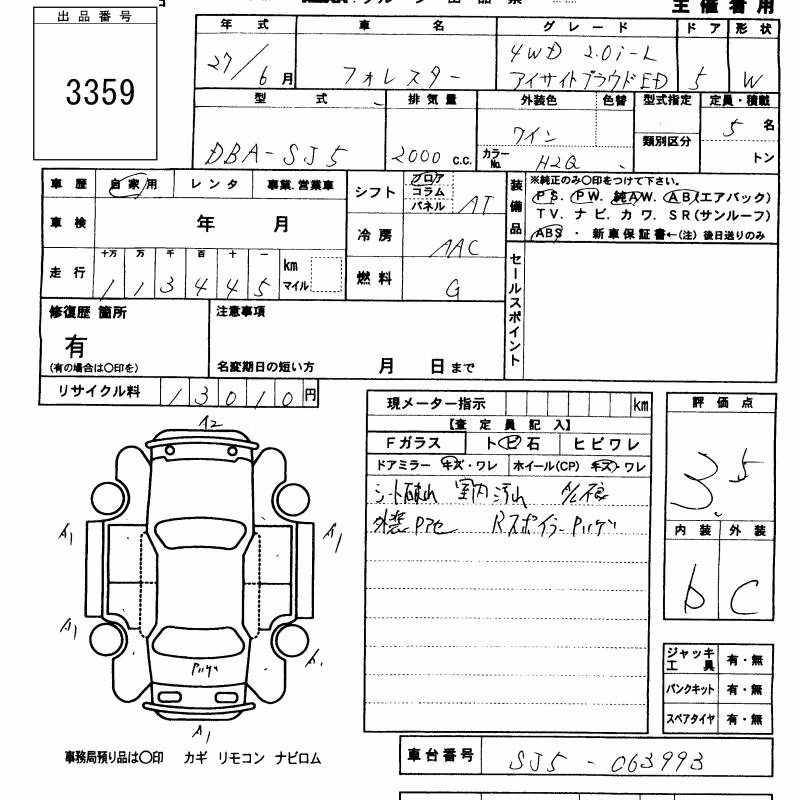 出品番号
3359
主催者用
年式 車名 グレード ドア 形状
27/6月 フォレスター 4WD 2.0i-L アイサイトプラウドED 5 W
型式 排気量 外装色 色替 型式指定 定員・積載
DBA-SJ5 2000 c.c. ワイン カラーNo. H2Q 類別区分 5名 トン
車歴 自家用 レンタ 事業.営業車
車検 年 月
走行 十万 万 千 百 十 一
1 1 3 4 4 5 km マイル
シフト フロア コラム パネル AT
冷房 AAC
燃料 G
装備品
※純正のみ○印をつけて下さい。
PS. PW. 純AW. AB(エアバック)
TV. ナビ. カワ. SR(サンルーフ)
ABS ・ 新車保証書←(注) 後日送りのみ
セールスポイント
修復歴 箇所
有
(有の場合は○印を)
注意事項
名変期日の短い方 月 日まで
リサイクル料 1 3 0 1 0 円
現メーター指示 km
【査定員記入】
Fガラス トビ石 ヒビワレ
ドアミラー キズ・ワレ ホイール(CP) キズ・ワレ
シート破れ 室内汚れ A/C不良
外装Pアセ Rスポイラー Pハゲ
評価点
3.5
内装 外装
b C
A2
A1
A1
A1
Pハゲ
A1
ジャッキ工具 有・無
パンクキット 有・無
スペアタイヤ 有・無
事務局預り品は○印 カギ リモコン ナビロム
車台番号 SJ5-063993